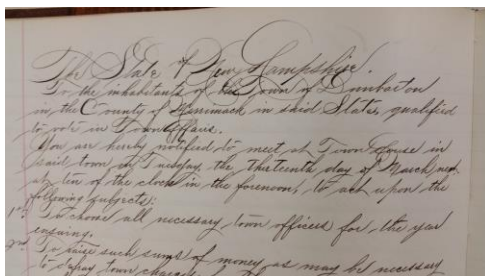 The State of New Hampshire.
To the inhabitants of the Town of Dunbarton
in the County of Merrimack in said State, qualified
to vote in Town affairs.
You are hereby notified to meet at Town House in
said town on Tuesday, the thirteenth day of March, next
at ten of the clock in the forenoon, to act upon the
following subjects:
1st. To choose all necessary town officers for the year
ensuing.
2nd. To raise such sums of money as may be necessary
to defray town charges